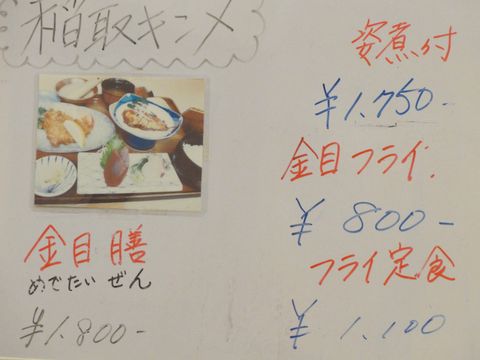 稲取キンメ
金目膳
めでたいぜん
¥1.800-
姿煮付
¥1.750-
金目フライ.
¥800-
フライ定食
¥1.100